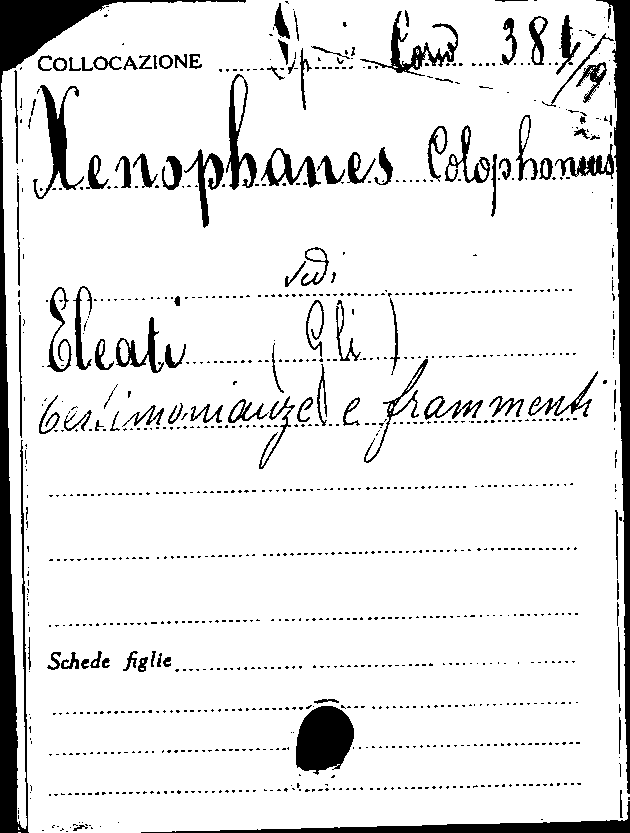 COLLOCAZIONE Corso 381/19
Xenophanes Colophonius
vedi
Eleati (Gli)
testimonianze e frammenti
Schede figlie